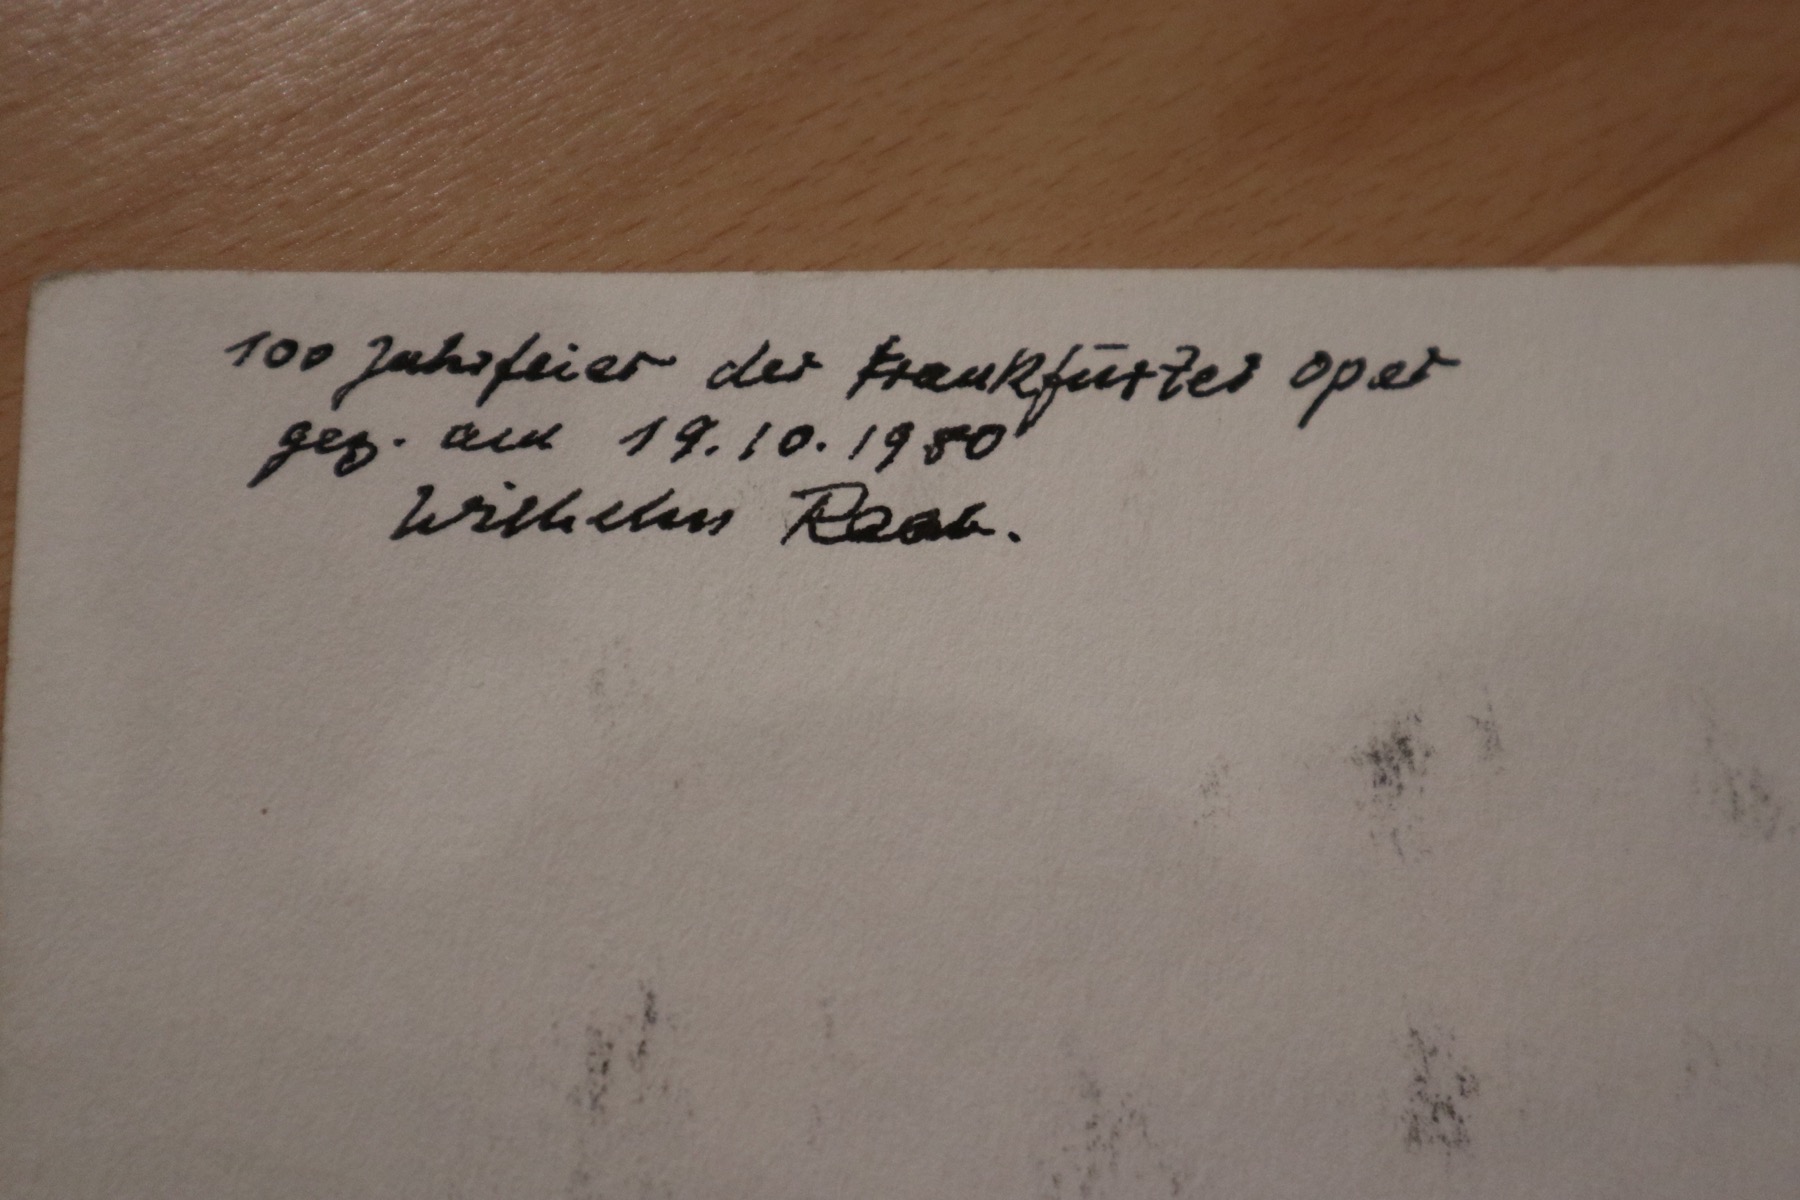 100 Jahrfeier der Frankfurter Oper
gez. am 19.10.1980
Wilhelm Raab.